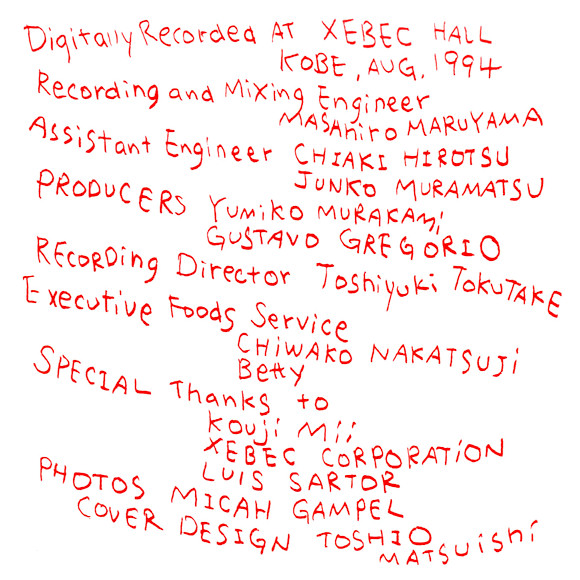 Digitally Recorded AT XEBEC HALL
KOBE, AUG, 1994
Recording and Mixing Engineer
MASAhiro MARUYAMA
Assistant Engineer CHIAKI HIROTSU
JUNKO MURAMATSU
PRODUCERS Yumiko MURAKAmi
GUSTAVO GREGORIO
RECORDing Director Toshiyuki TOKUTAKE
Executive Foods Service
CHiWAKO NAKATSUji
Betty
SPECIAL Thanks to
Kouji Mii
XEBEC CORPORATiON
LUIS SARTOR
PHOTOS MICAH GAMPEL
COVER DESIGN TOSHIO
MATSUishi